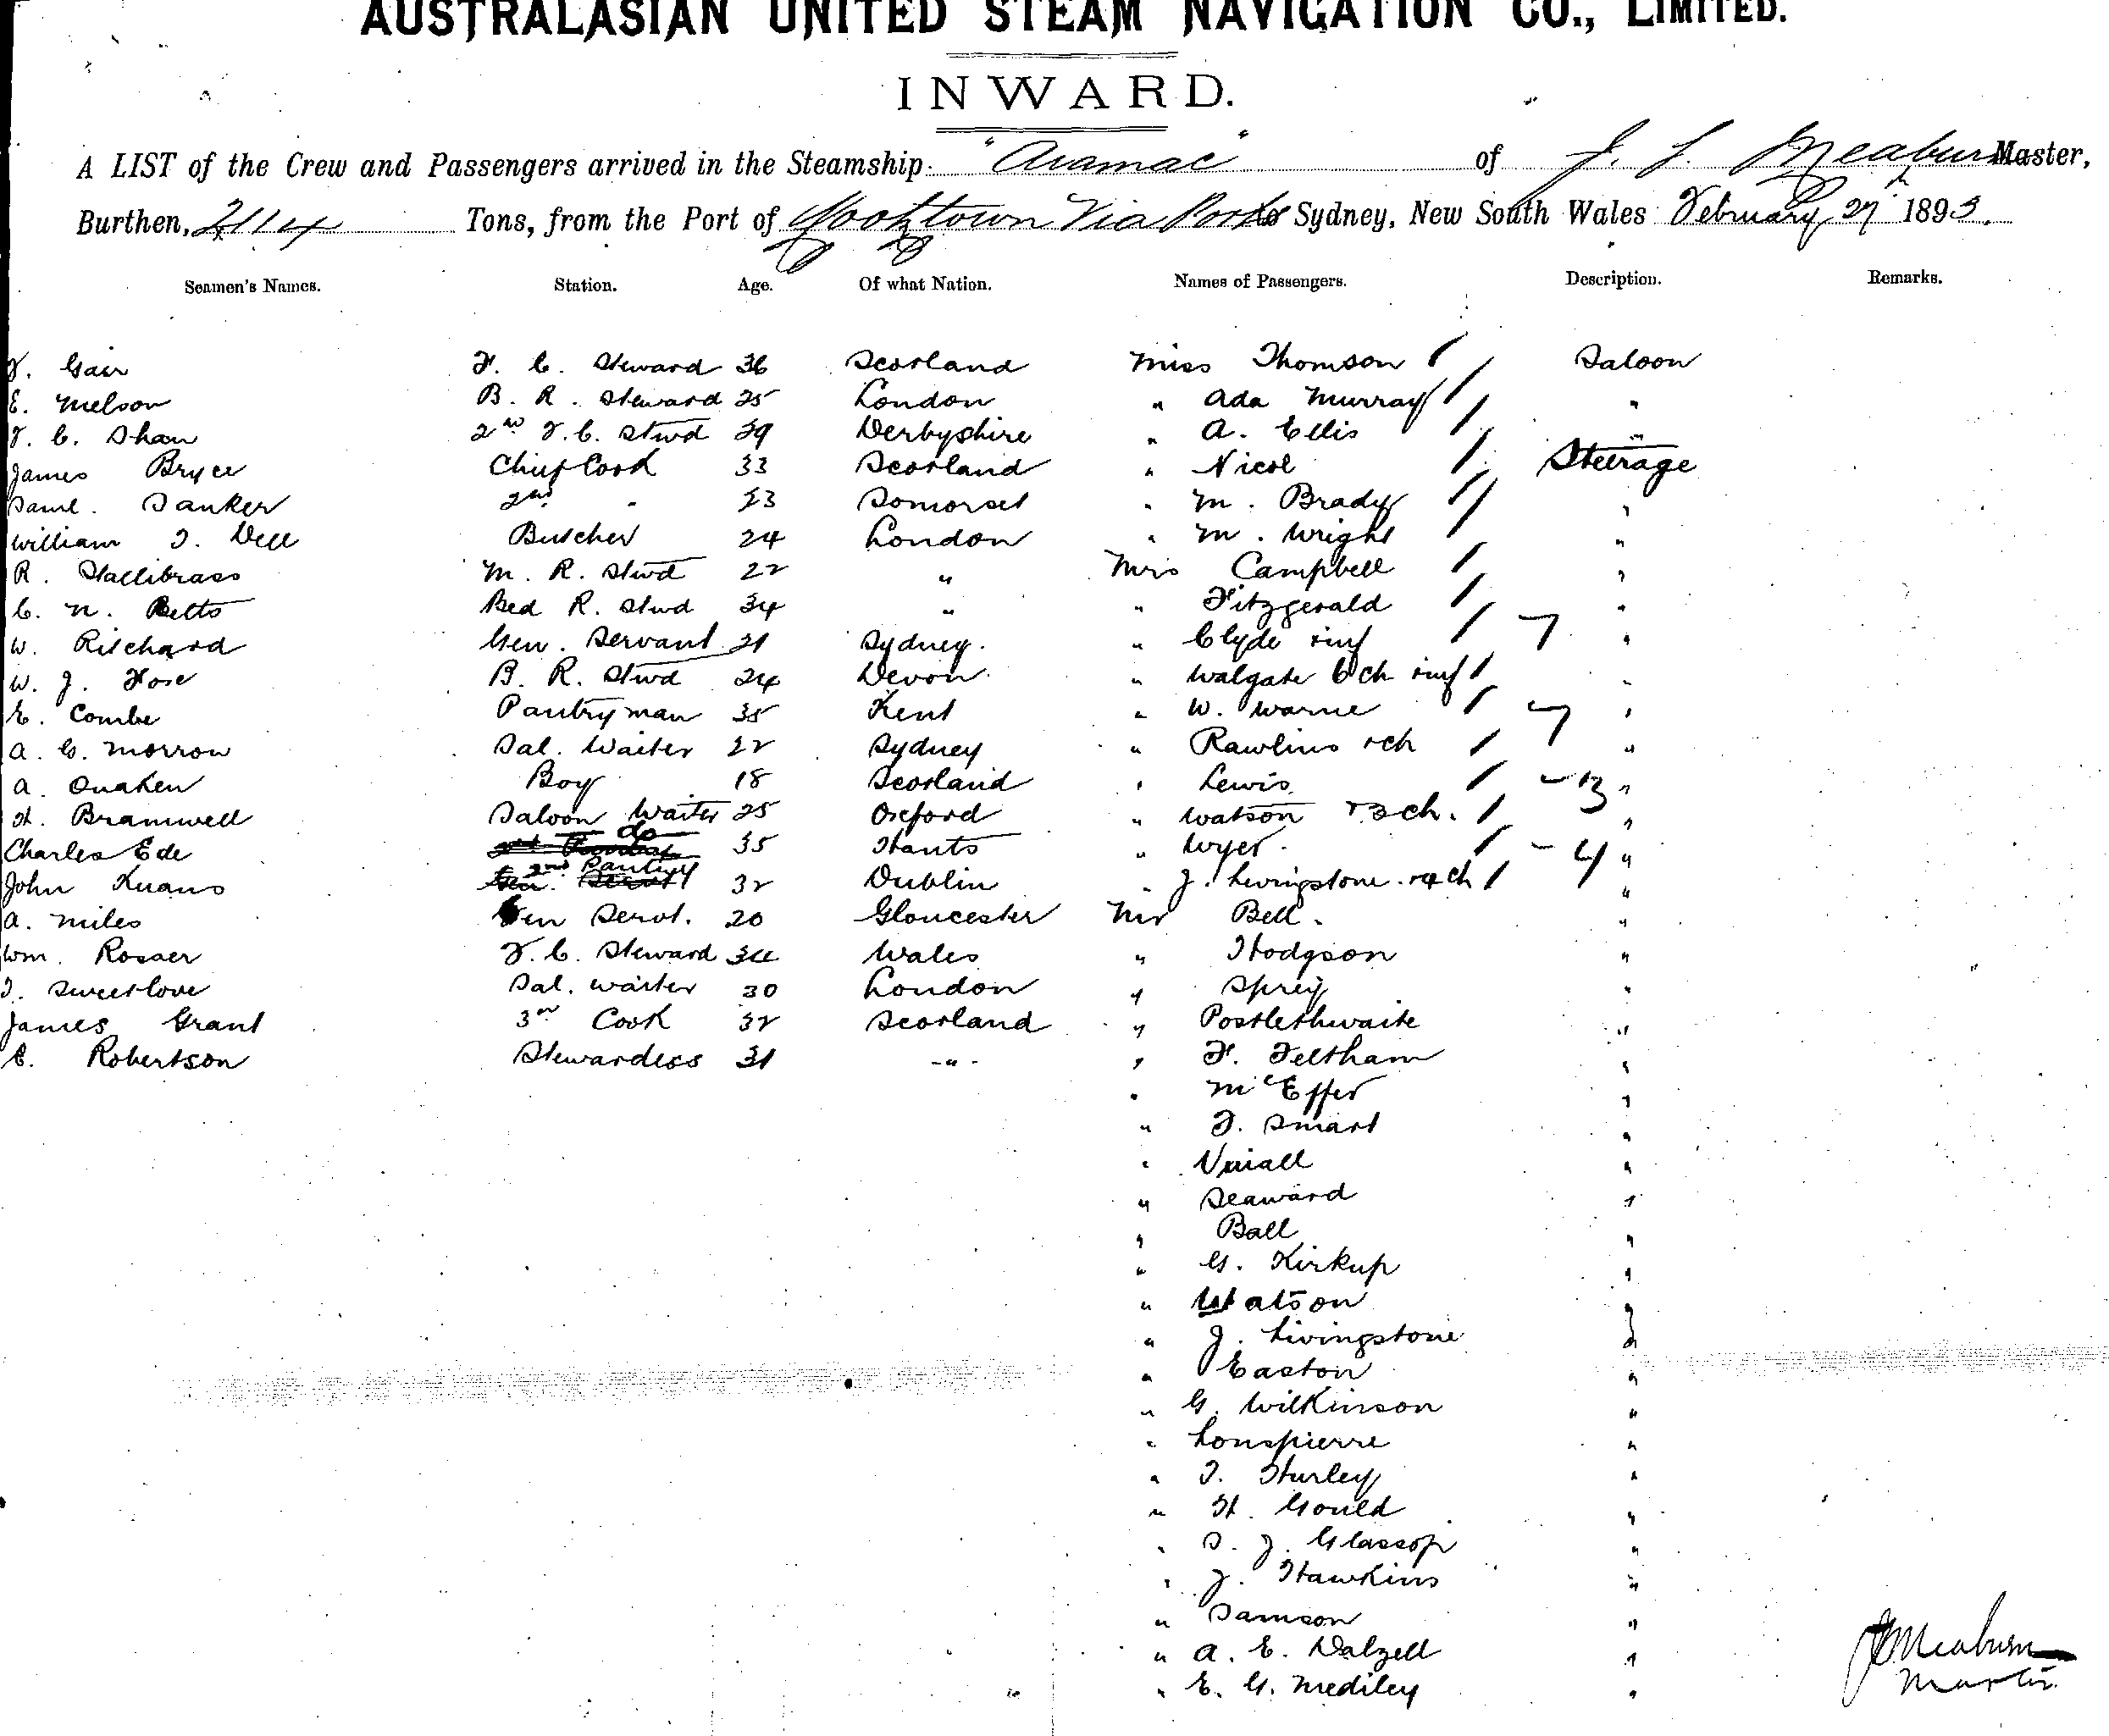 AUSTRALASIAN UNITED STEAM NAVIGATION CO., LIMITED.
INWARD.
A LIST of the Crew and Passengers arrived in the Steamship "Aramac" of J. L. Meaburn Master,
Burthen, 2114 Tons, from the Port of Cooktown Via Ports to Sydney, New South Wales February 27th 1893.
Seamen's Names. Station. Age. Of what Nation. Names of Passengers. Description. Remarks.
Gair F. C. Steward 36 Scotland Miss Thomson / Saloon
E. Melson B. R. Steward 25 London " Ada Murray / "
F. C. Shaw 2nd F. C. Stwd 29 Derbyshire " A. Ellis / "
James Bryce Chief Cook 33 Scotland " Nicol / Steerage
Saml. Danker 2nd " 23 Somerset " M. Brady / "
William J. Dell Butcher 24 London " M. Wright / "
R. Hallibrass M. R. Stwd 22 " Mrs Campbell / "
C. N. Betts Bed R. Stwd 34 " " Fitzgerald / "
W. Ritchard Gen. Servant 21 Sydney. " Clyde & inf / 7 "
W. J. Hose B. R. Stwd 24 Devon. " Walgate 6 ch & inf / "
E. Combe Pantryman 35 Kent " W. Warne / 7 "
A. C. Morrow Sal. Waiter 22 Sydney " Rawlins & ch / "
A. Boy 18 Scotland " Lewis / "
H. Bramwell Saloon Waiter 25 Oxford " Watson & 3 ch. / "
Charles Ede do 35 Hants " Wyer. / - 4 "
John 2nd Pantry 32 Dublin " J. Livingstone & 4 ch / "
A. Miles Gen Servt. 20 Gloucester Mr Bell. "
Wm. Rosser F. C. Steward 34 Wales " Hodgson "
J. Sweetlove Sal. Waiter 30 London " Spreig "
James Grant 3rd Cook 32 Scotland " Postlethwaite "
E. Robertson Stewardess 31 - " - " F. Feltham "
" "
" J. Smart "
" "
" Seaward "
" Ball "
" G. Kirkup "
" Watson "
" J. Livingstone "
" Easton "
" G. Wilkinson "
" Lonspierre "
" J. Hurley "
" H. Gould "
" S. J. Glassop "
" J. Hawkins "
" Samson "
" A. E. Dalzell "
" E. G. Mediley "
J L Meaburn
Master